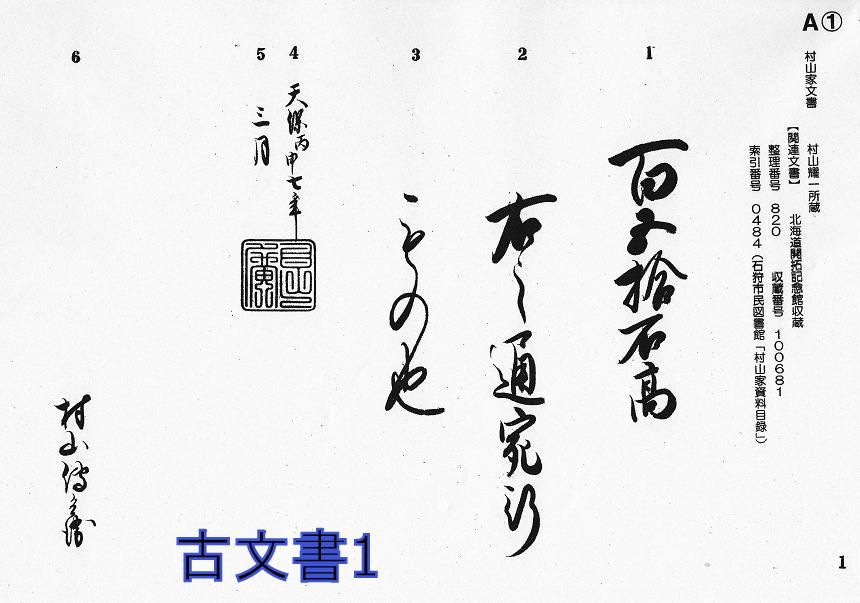 A①
村山家文書　村山耀一所蔵
【関連文書】　北海道開拓記念館収蔵
整理番号　８２０　収蔵番号　１００６８１
索引番号　０４８４（石狩市民図書館「村山家資料目録」）
1
百五拾石高
2
右之通宛行
3
もの也
4
天保丙申七年
5
三月
6
村山傳兵衛
古文書1
1